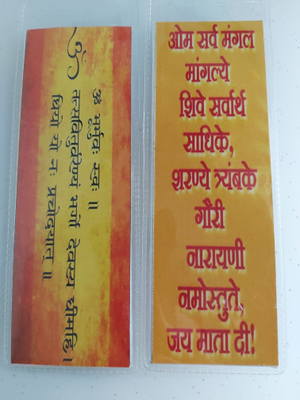 ॐ भूर्भुवः स्वः ॥
तत्सवितुवरेण्यं भर्गो देवस्य धीमहि।
धियो यो नः प्रचोदयात् ॥
ओम सर्व मंगल
मांगल्ये
शिवे सर्वार्थ
साधिके,
शरण्ये त्र्यंबके
गौरी
नारायणी
नमोस्तुते,
जय माता दी!